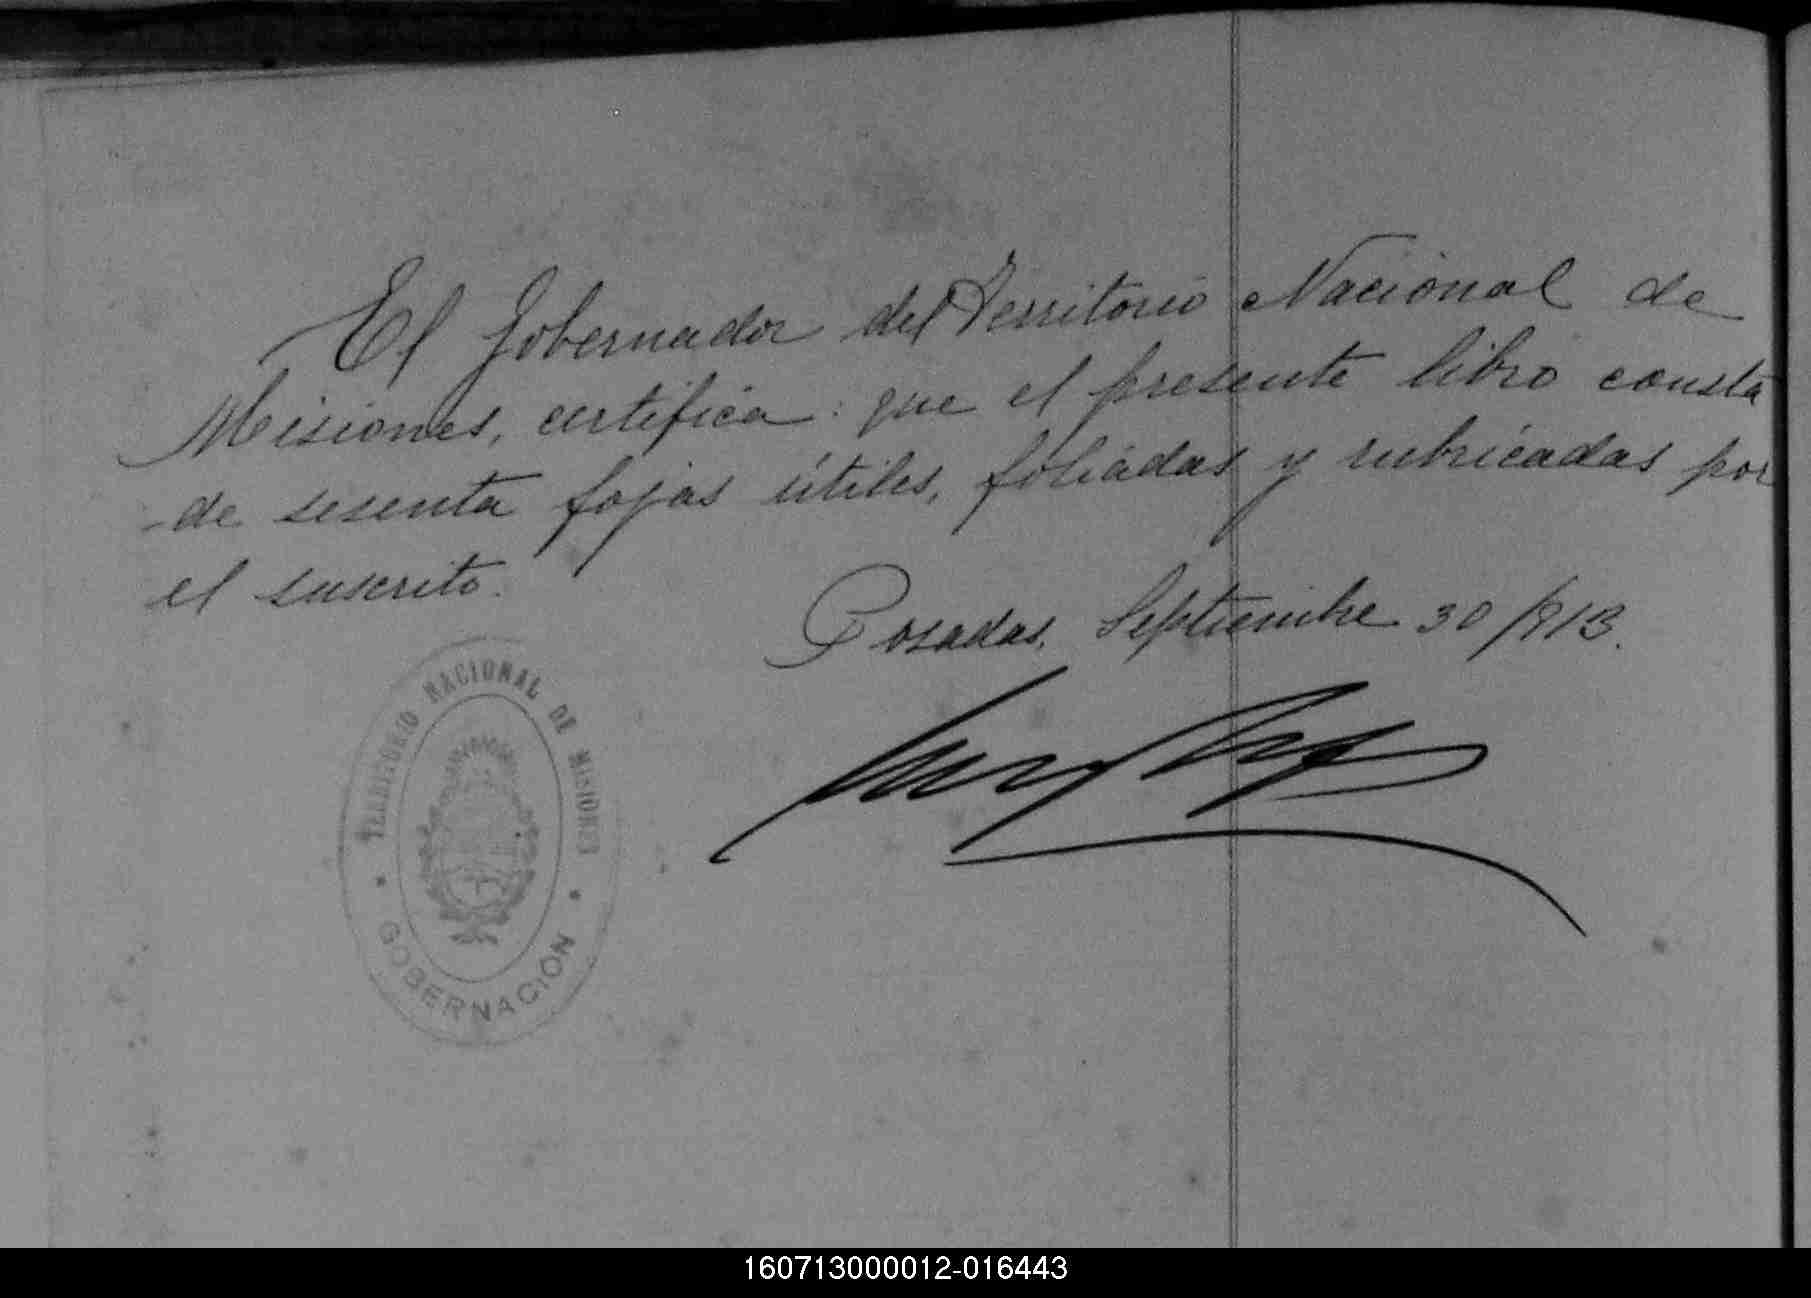 El Gobernador del Territorio Nacional de
Misiones, certifica: que el presente libro consta
de sesenta fojas útiles, foliadas y rubricadas por
el suscrito.
Posadas, Septiembre 30/913.
TERRITORIO NACIONAL DE MISIONES
GOBERNACIÓN
160713000012-016443